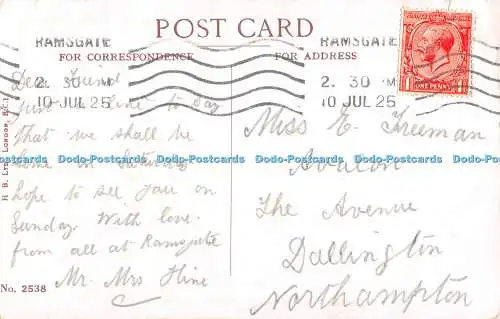 POST CARD
FOR CORRESPONDENCE
FOR ADDRESS
RAMSGATE
2. 30 M
10 JUL 25
RAMSGATE
2. 30 M
10 JUL 25
ONE PENNY
Dear Friend
Just a line to day
that we shall be
home on Saturday
hope to see you on
Sunday. With love
from all at Ramsgate
Mr. Mrs Hine
Miss E. Freeman
Avalon
The Avenue
Dallington
Northampton
H. B. LTD. LONDON, E.C.1
No. 2538
Dodo-Postcards Dodo-Postcards Dodo-Postcards Dodo-Postcards Dodo-Postcards